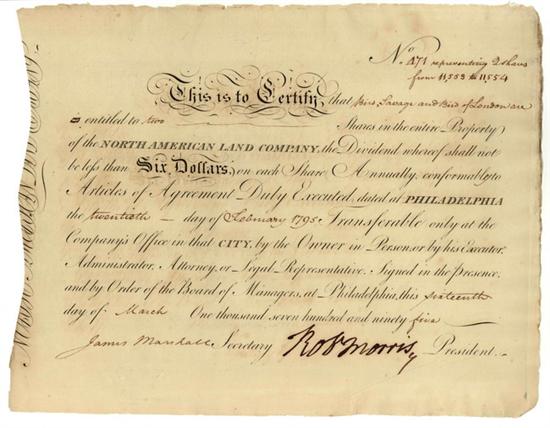 No. 471 representing 2 Shares
from 11,553 to 11,554
This is to Certify, that Bird, Savage and Bird of London are
entitled to two Shares in the entire Property
of the NORTH AMERICAN LAND COMPANY, the Dividend whereof shall not
be less than Six Dollars, on each Share Annually, conformably to
Articles of Agreement Duly Executed, dated at PHILADELPHIA
the twentieth day of February 1795. Transferable only at the
Company's Office in that CITY, by the Owner in Person, or by his Executor,
Administrator, Attorney, or Legal Representative. Signed in the presence,
and by Order of the Board of Managers, at Philadelphia, this sixteenth
day of March One thousand seven hundred and ninety five
James Marshall Secretary Rob Morris President